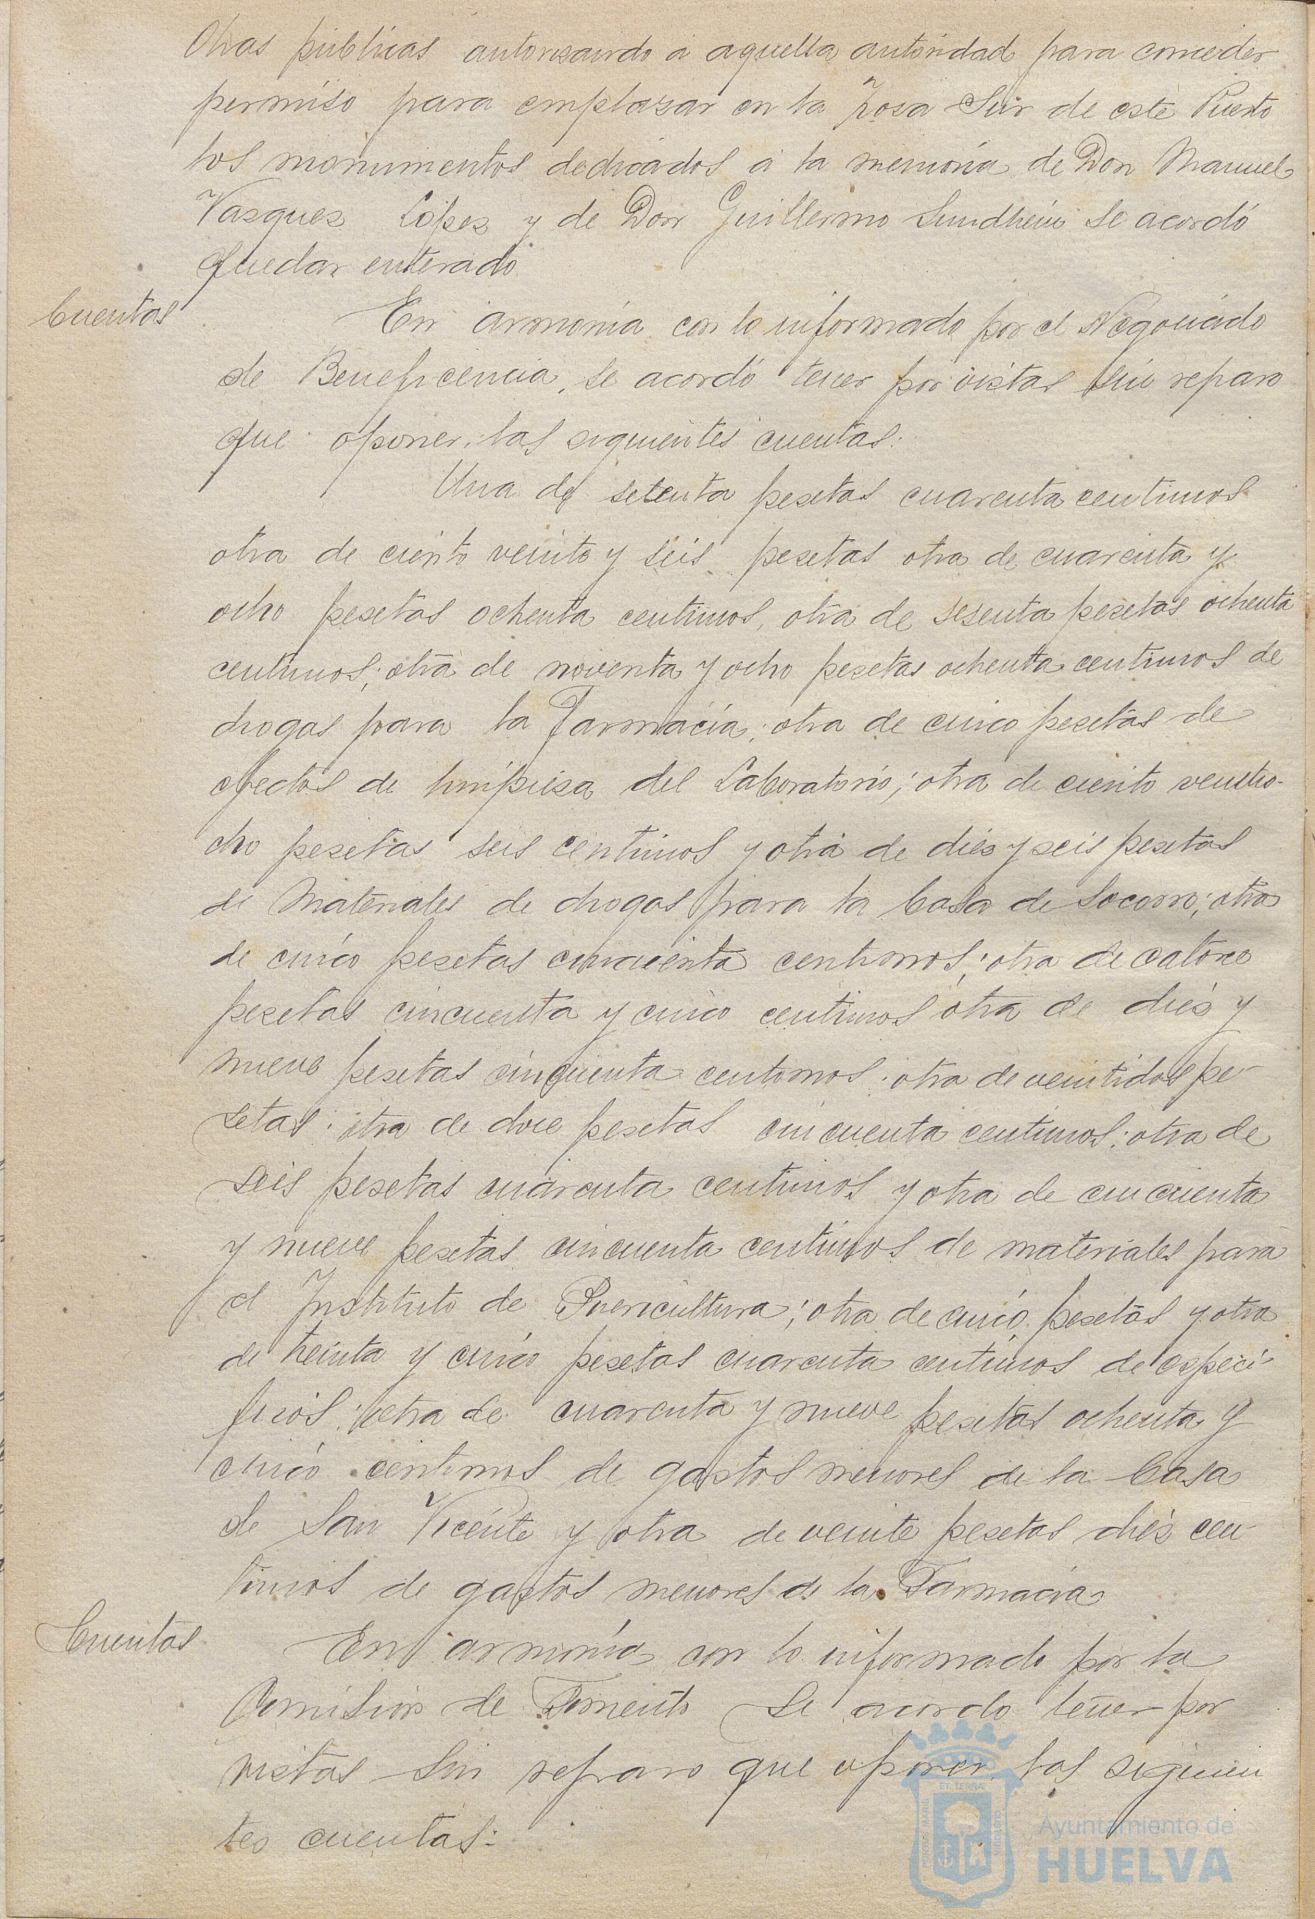 Obras públicas autorizando á aquella autoridad para conceder
permiso para emplazar en la Zona Sur de este Puerto
los monumentos dedicados á la memoria de Don Manuel
Vasquez López y de Don Guillermo Sundheim se acordó
quedar enterado
Cuentas
En armonía con lo informado por el Negociado
de Beneficencia, se acordó tener por vistas sin reparo
que oponer, las siguientes cuentas:
Una de setenta pesetas cuarenta centimos
otra de ciento veinte y seis pesetas otra de cuarenta y
ocho pesetas ochenta centimos, otra de sesenta pesetas ochenta
centimos; otra de noventa y ocho pesetas ochenta centimos de
drogas para la Farmacia; otra de cinco pesetas de
efectos de limpieza del Laboratorio; otra de ciento veintio-
cho pesetas seis centimos y otra de diez y seis pesetas
de Materiales de drogas para la Casa de Socorro; otra
de cinco pesetas cincuenta centimos; otra de catorce
pesetas cincuenta y cinco centimos otra de diez y
nueve pesetas cincuenta centimos; otra de veintidos pe-
setas; otra de doce pesetas cincuenta centimos; otra de
seis pesetas cuarenta centimos y otra de cincuenta
y nueve pesetas cincuenta centimos de materiales para
el Instituto de Puericultura; otra de cinco pesetas y otra
de treinta y cinco pesetas cuarenta centimos de especi-
ficos; otra de cuarenta y nueve pesetas ochenta y
cinco centimos de gastos menores de la Casa
de San Vicente y otra de veinte pesetas diez cen-
timos de gastos menores de la Farmacia
Cuentas
En armonía con lo informado por la
Comisión de Fomento se acordo tener por
vistas sin reparo que oponer las siguien
tes cuentas:
Ayuntamiento de
HUELVA